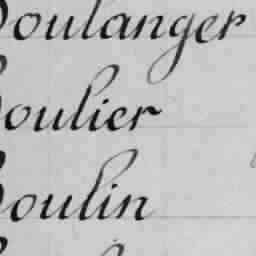 Boulanger
Boulier
Boulin